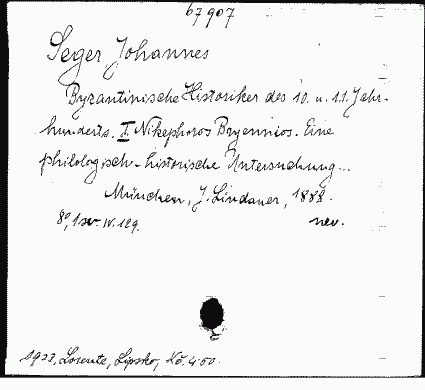 67907
Seger Johannes
Byzantinische Historiker des 10. u. 11. Jahr-
hunderts. I. Nikephoros Bryennios. Eine
philologisch-historische Untersuchung...
München, J. Lindauer, 1888.
8°, 1 sv. IV. 129. nev.
1922, Lorentz, Lipsko, Kč. 4.50.